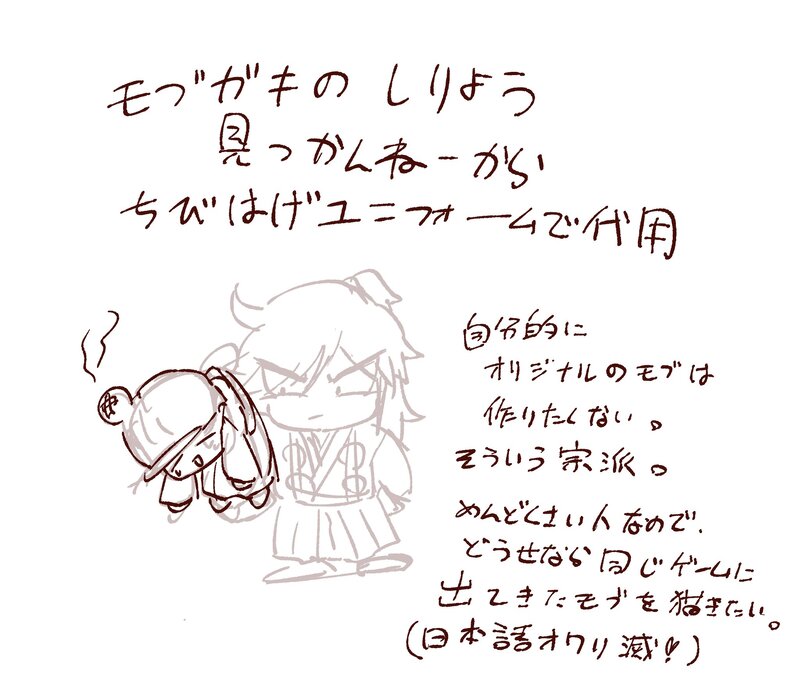 モブガキの しりよう
見つかんねーから
ちびはげユニフォームで代用
自分的に
オリジナルのモブは
作りたくない。
そういう宗派。
めんどくさい人なので、
どうせなら同じゲームに
出てきたモブを描きたい。
(日本語オワリ滅!)